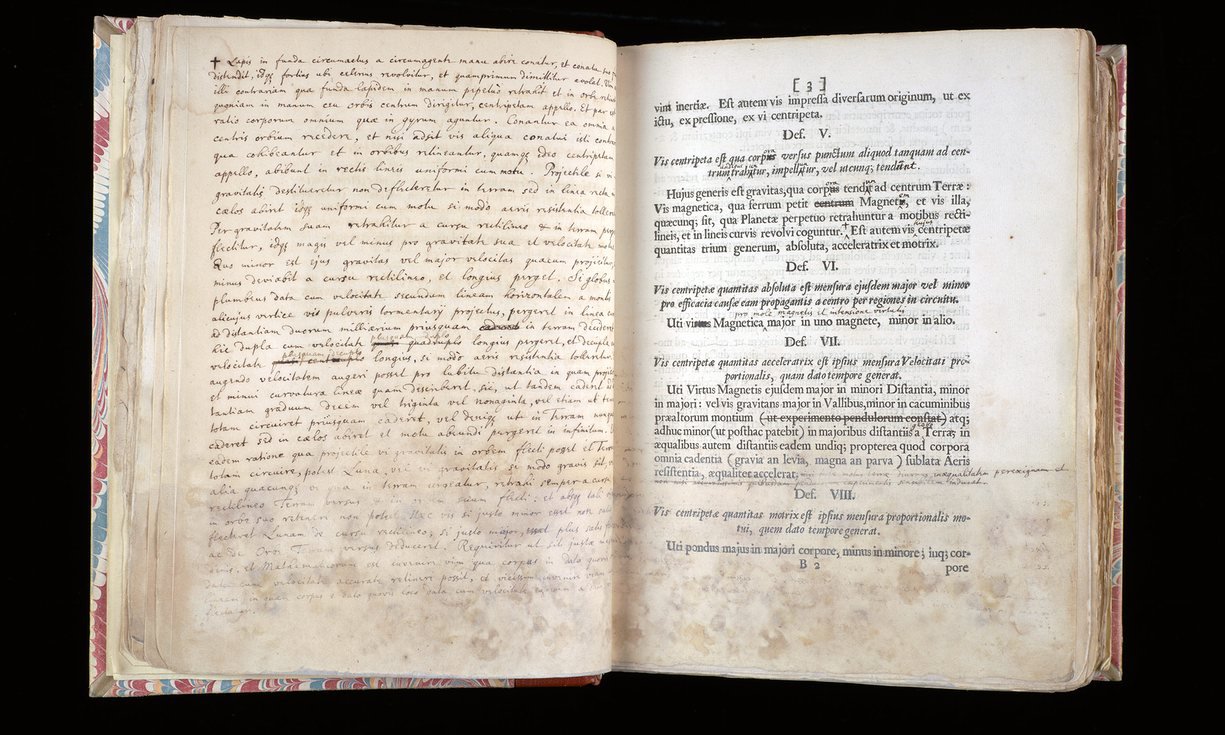 ✝ Lapis in funda circumactus a circumagente manu abire conatur, et conatu suo
distendit, idq; fortius ubi celerius revolvitur, et quamprimum dimittitur evolat. Vim
illi contrariam qua funda lapidem in manum perpetuo retrahit et in orbe
quoniam in manum ceu orbis centrum dirigitur, centripetam appello. Et par est
ratio corporum omnium quæ in gyrum aguntur. Conantur ea omnia a
centris orbium recedere, et nisi adsit vis aliqua conatui isti
qua cohibeantur et in orbibus retineantur, quamq; ideo centripetam
appello, abibunt in rectis lineis uniformi cum motu. Projectile si
gravitatis destitueretur non deflecteretur in terram sed in linea recta
cælos abiret idq; uniformi cum motu si modo aeris resistentia
Per gravitatem suam retrahitur a cursu rectilineo & in terram
flectitur, idq; magis vel minus pro gravitate sua et velocitate
Quo minor est ejus gravitas vel major velocitas quacum projicitur,
minus deviabit a cursu rectilineo, et longius perget. Si globus
plumbeus data cum velocitate secundum lineam horizontalem a montis
alicujus vertice vis pulveris tormentarij projectus, pergeret in linea
ad distantiam duorum milliarium priusquam in terram
hic dupla cum velocitate quasi duplo longius pergeret, et decupla
velocitate quasi decuplo longius, si modo aeris resistentia tolleretur.
augendo velocitatem augeri posset pro lubitu distantia in quam
et minui curvatura lineæ quam describeret, sic, ut tandem caderet
tantiam graduum decem vel triginta vel nonaginta, vel etiam ut
totam circuiret priusquam caderet, vel deniq; ut in Terram
caderet sed in cælos abiret et motu abeundi pergeret in infinitum.
eadem ratione qua projectile vi gravitatis in orbem flecti posset et Terram
totam circuire, potest Luna vel vi gravitatis si modo gravis sit, vel
alia quacunq; in terram urgeatur, retrahi semper a cursu
rectilineo Terram versus & in orbem suum flecti: et absq; tali
in orbe suo retineri non potest. Hæc vis si justo minor esset non satis
flecteret Lunam de cursu rectilineo; si justo major, plus satis
ac de Orbe Terram versus deduceret. Requiritur ut sit justæ
et Mathematicorum est invenire vim qua corpus in dato quovis
velocitate accurate retineri posset, et vicissim invenire
in quam corpus e dato quovis loco data cum velocitate
[ 3 ]
vim inertiæ. Est autem vis impressa diversarum originum, ut ex
ictu, ex pressione, ex vi centripeta.
Def. V.
Vis centripeta est qua corpus versus punctum aliquod tanquam ad cen-
trum trahitur, impellitur, vel utcunq; tendit.
Hujus generis est gravitas, qua corpus tendit ad centrum Terræ:
Vis magnetica, qua ferrum petit centrum Magnetis, et vis illa,
quæcunq; sit, qua Planetæ perpetuo retrahuntur a motibus recti-
lineis, et in lineis curvis revolvi coguntur.✝ Est autem vis hujus centripetæ
quantitas trium generum, absoluta, acceleratrix et motrix.
Def. VI.
Vis centripetæ quantitas absoluta est mensura ejusdem major vel minor
pro efficacia causæ eam propagantis a centro per regiones in circuitu.
pro mole magnetis et intensione virtutis
Uti virtus Magnetica major in uno magnete, minor in alio.
Def. VII.
Vis centripetæ quantitas acceleratrix est ipsius mensura Velocitati pro-
portionalis, quam dato tempore generat.
Uti Virtus Magnetis ejusdem major in minori Distantia, minor
in majori: vel vis gravitans major in Vallibus, minor in cacuminibus
præaltorum montium (ut experimento pendulorum constat) atq;
adhuc minor (ut posthac patebit) in majoribus distantiis a Terra; in
æqualibus autem distantiis eadem undiq; propterea quod corpora
omnia cadentia (gravia an levia, magna an parva) sublata Aeris
resistentia, æqualiter accelerat.
Def. VIII.
Vis centripetæ quantitas motrix est ipsius mensura proportionalis mo-
tui, quem dato tempore generat.
Uti pondus majus in majori corpore, minus in minore; inq; cor-
B 2
pore